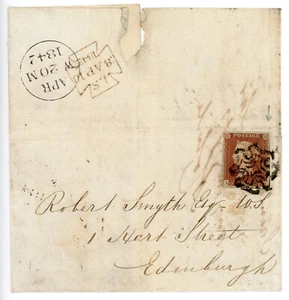 1842
W 20 M
APR
POSTAGE
Robert Smyth Esq W.S.
1 Hart Street
Edinburgh